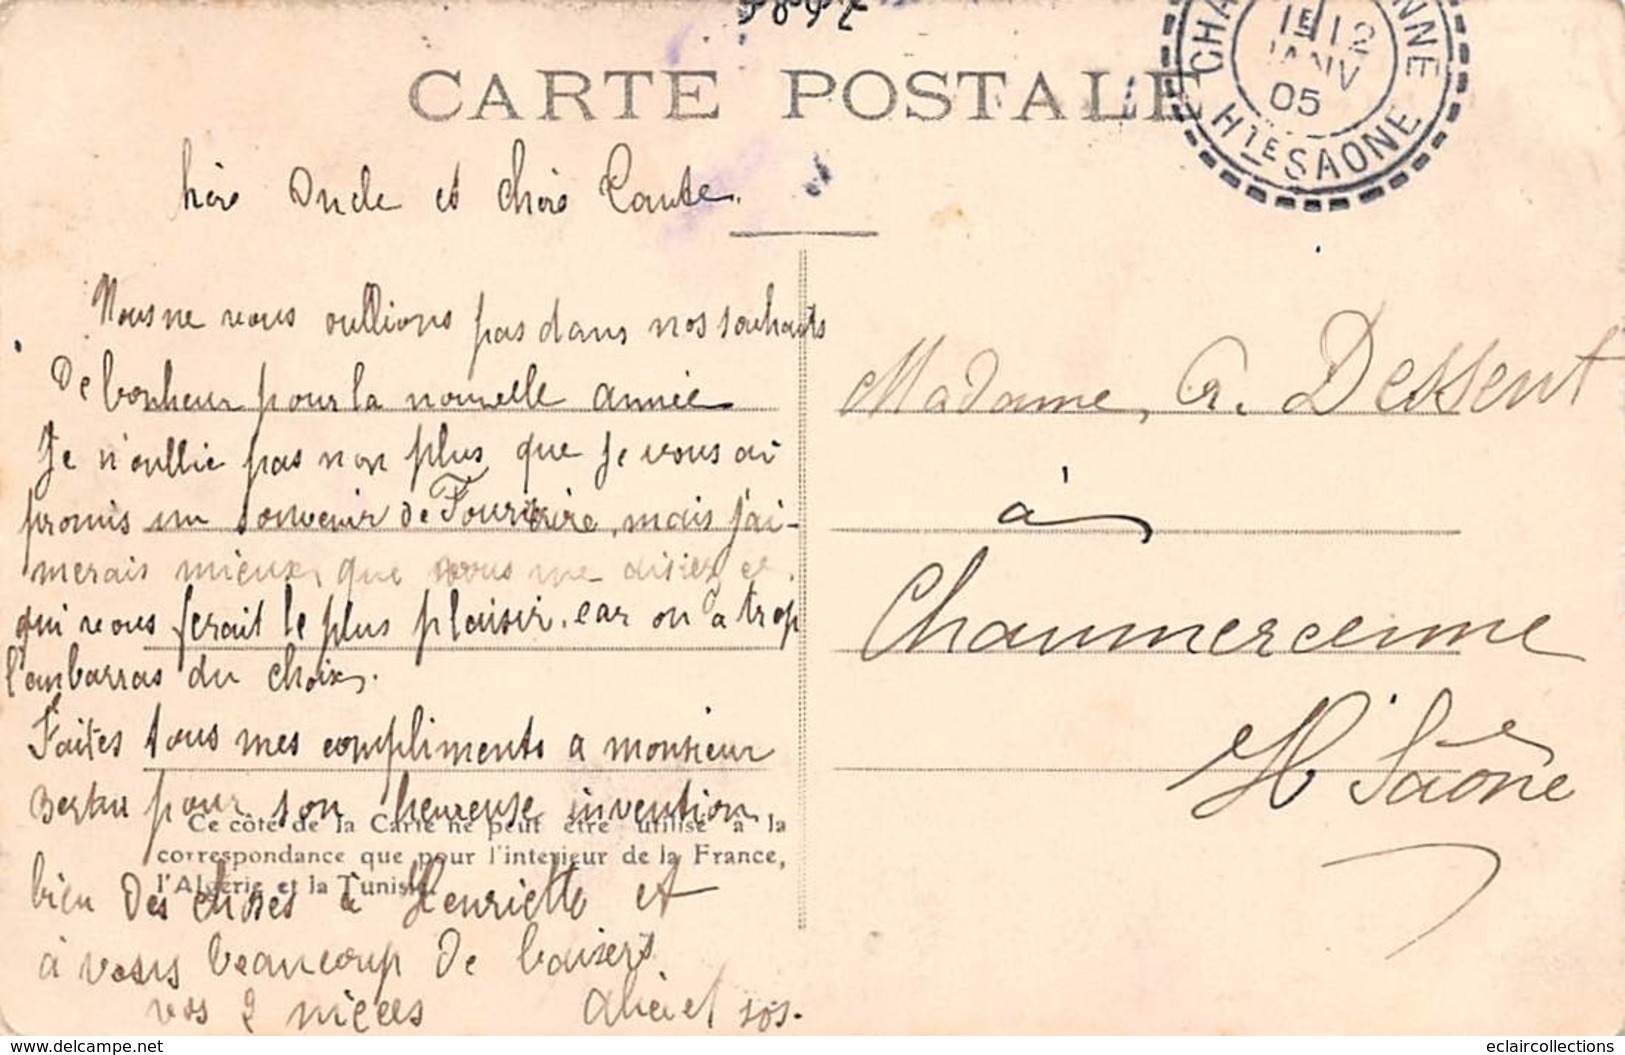 CARTE POSTALE
1E 12
JANV
05
Hte SAONE
hère Oncle et chère Tante.
Nous ne vous oullions pas dans nos souhaits
De bonheur pour la nouvelle année
Je n'oullie pas non plus que je vous ai
promis un souvenir de Fourvière, mais j'ai-
merais mieux que vous me disiez ce
qui vous ferait le plus plaisir. car on a trop
l'embarras du choix.
Faites tous mes compliments a monsieur
pour son heureuse invention
bien des choses à Henriette et
à vous beaucoup de baisers
vos 2 nièces
Madame, A. Dessent
à
Chaumercenne
Hte Saône
Ce côté de la Carte ne peut être utilisé à la
correspondance que pour l'intérieur de la France,
l'Algérie et la Tunisie.
www.delcampe.net
eclaircollections